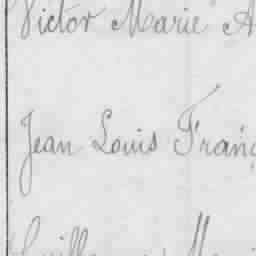 Victor Marie A
Jean Louis Franç